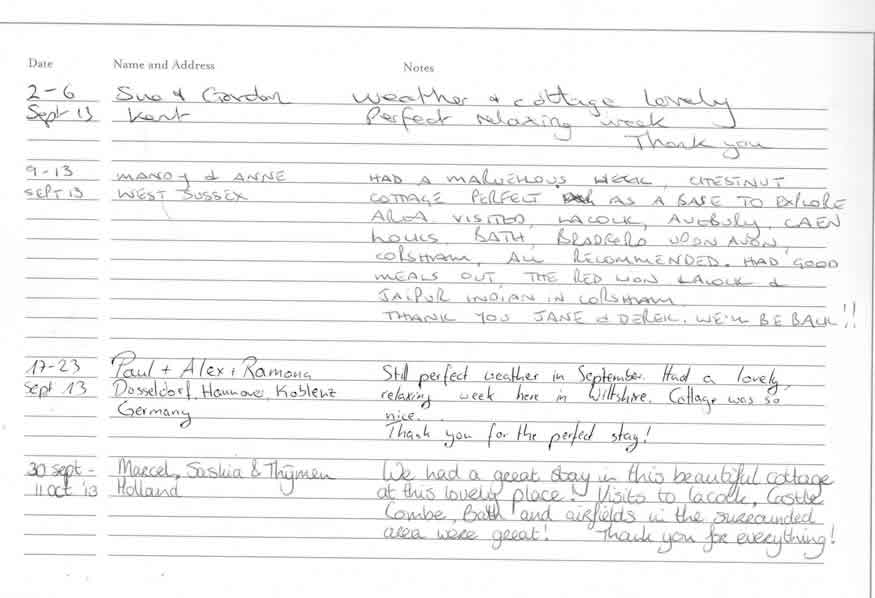 Date Name and Address Notes
2-6 Sue & Gordon Weather & cottage lovely
Sept 13 Kent Perfect relaxing week
Thank you
9-13 MANDY & ANNE HAD A MARVELLOUS WEEK, CHESTNUT
SEPT 13 WEST SUSSEX COTTAGE PERFECT AS A BASE TO EXPLORE
AREA. VISITED, LACOCK, AVEBURY, CAEN
LOCKS, BATH, BRADFORD UPON AVON,
CORSHAM, ALL RECOMMENDED. HAD GOOD
MEALS OUT, THE RED LION LACOCK &
JAIPUR INDIAN IN CORSHAM.
THANK YOU JANE & DEREK. WE'LL BE BACK!!
17-23 Paul + Alex + Ramona Still perfect weather in September. Had a lovely,
Sept 13 Dosseldorf, Hannover, Koblenz relaxing week here in Wiltshire. Cottage was so
Germany nice.
Thank you for the perfect stay!
30 sept - Marcel, Saskia & Thymen We had a great stay in this beautiful cottage
11 oct '13 Holland at this lovely place! Visits to Lacock, Castle
Combe, Bath and airfields in the surrounded
area were great! Thank you for everything!